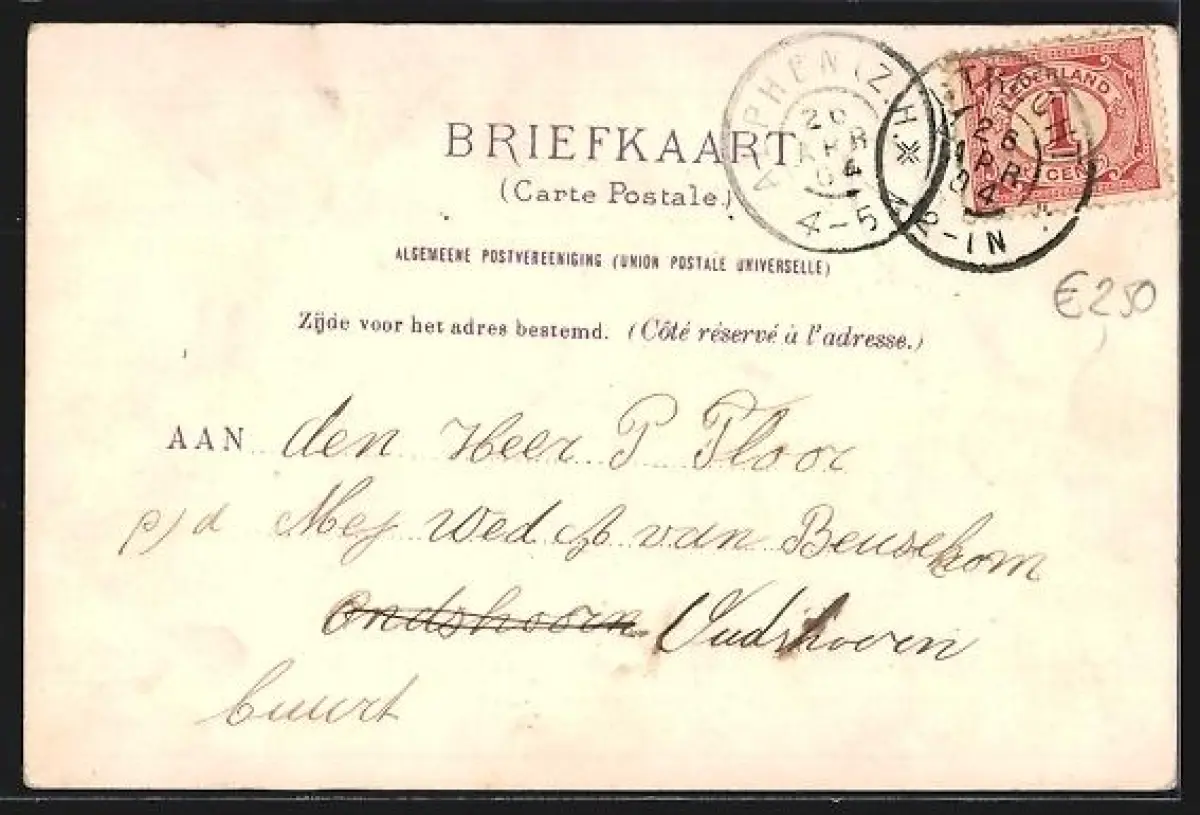 BRIEFKAART
(Carte Postale.)
ALGEMEENE POSTVEREENIGING (UNION POSTALE UNIVERSELLE)
Zijde voor het adres bestemd. (Côté réservé à l'adresse.)
ALPHEN (Z.H.)
26 APR 04
4-5N
NEDERLAND
1
CENT
26 APR 04
12-1N
€ 2,50
AAN den Heer P Floor
p/d Mej Wed van Beusekom
Oudshoorn Oudshoorn
buurt